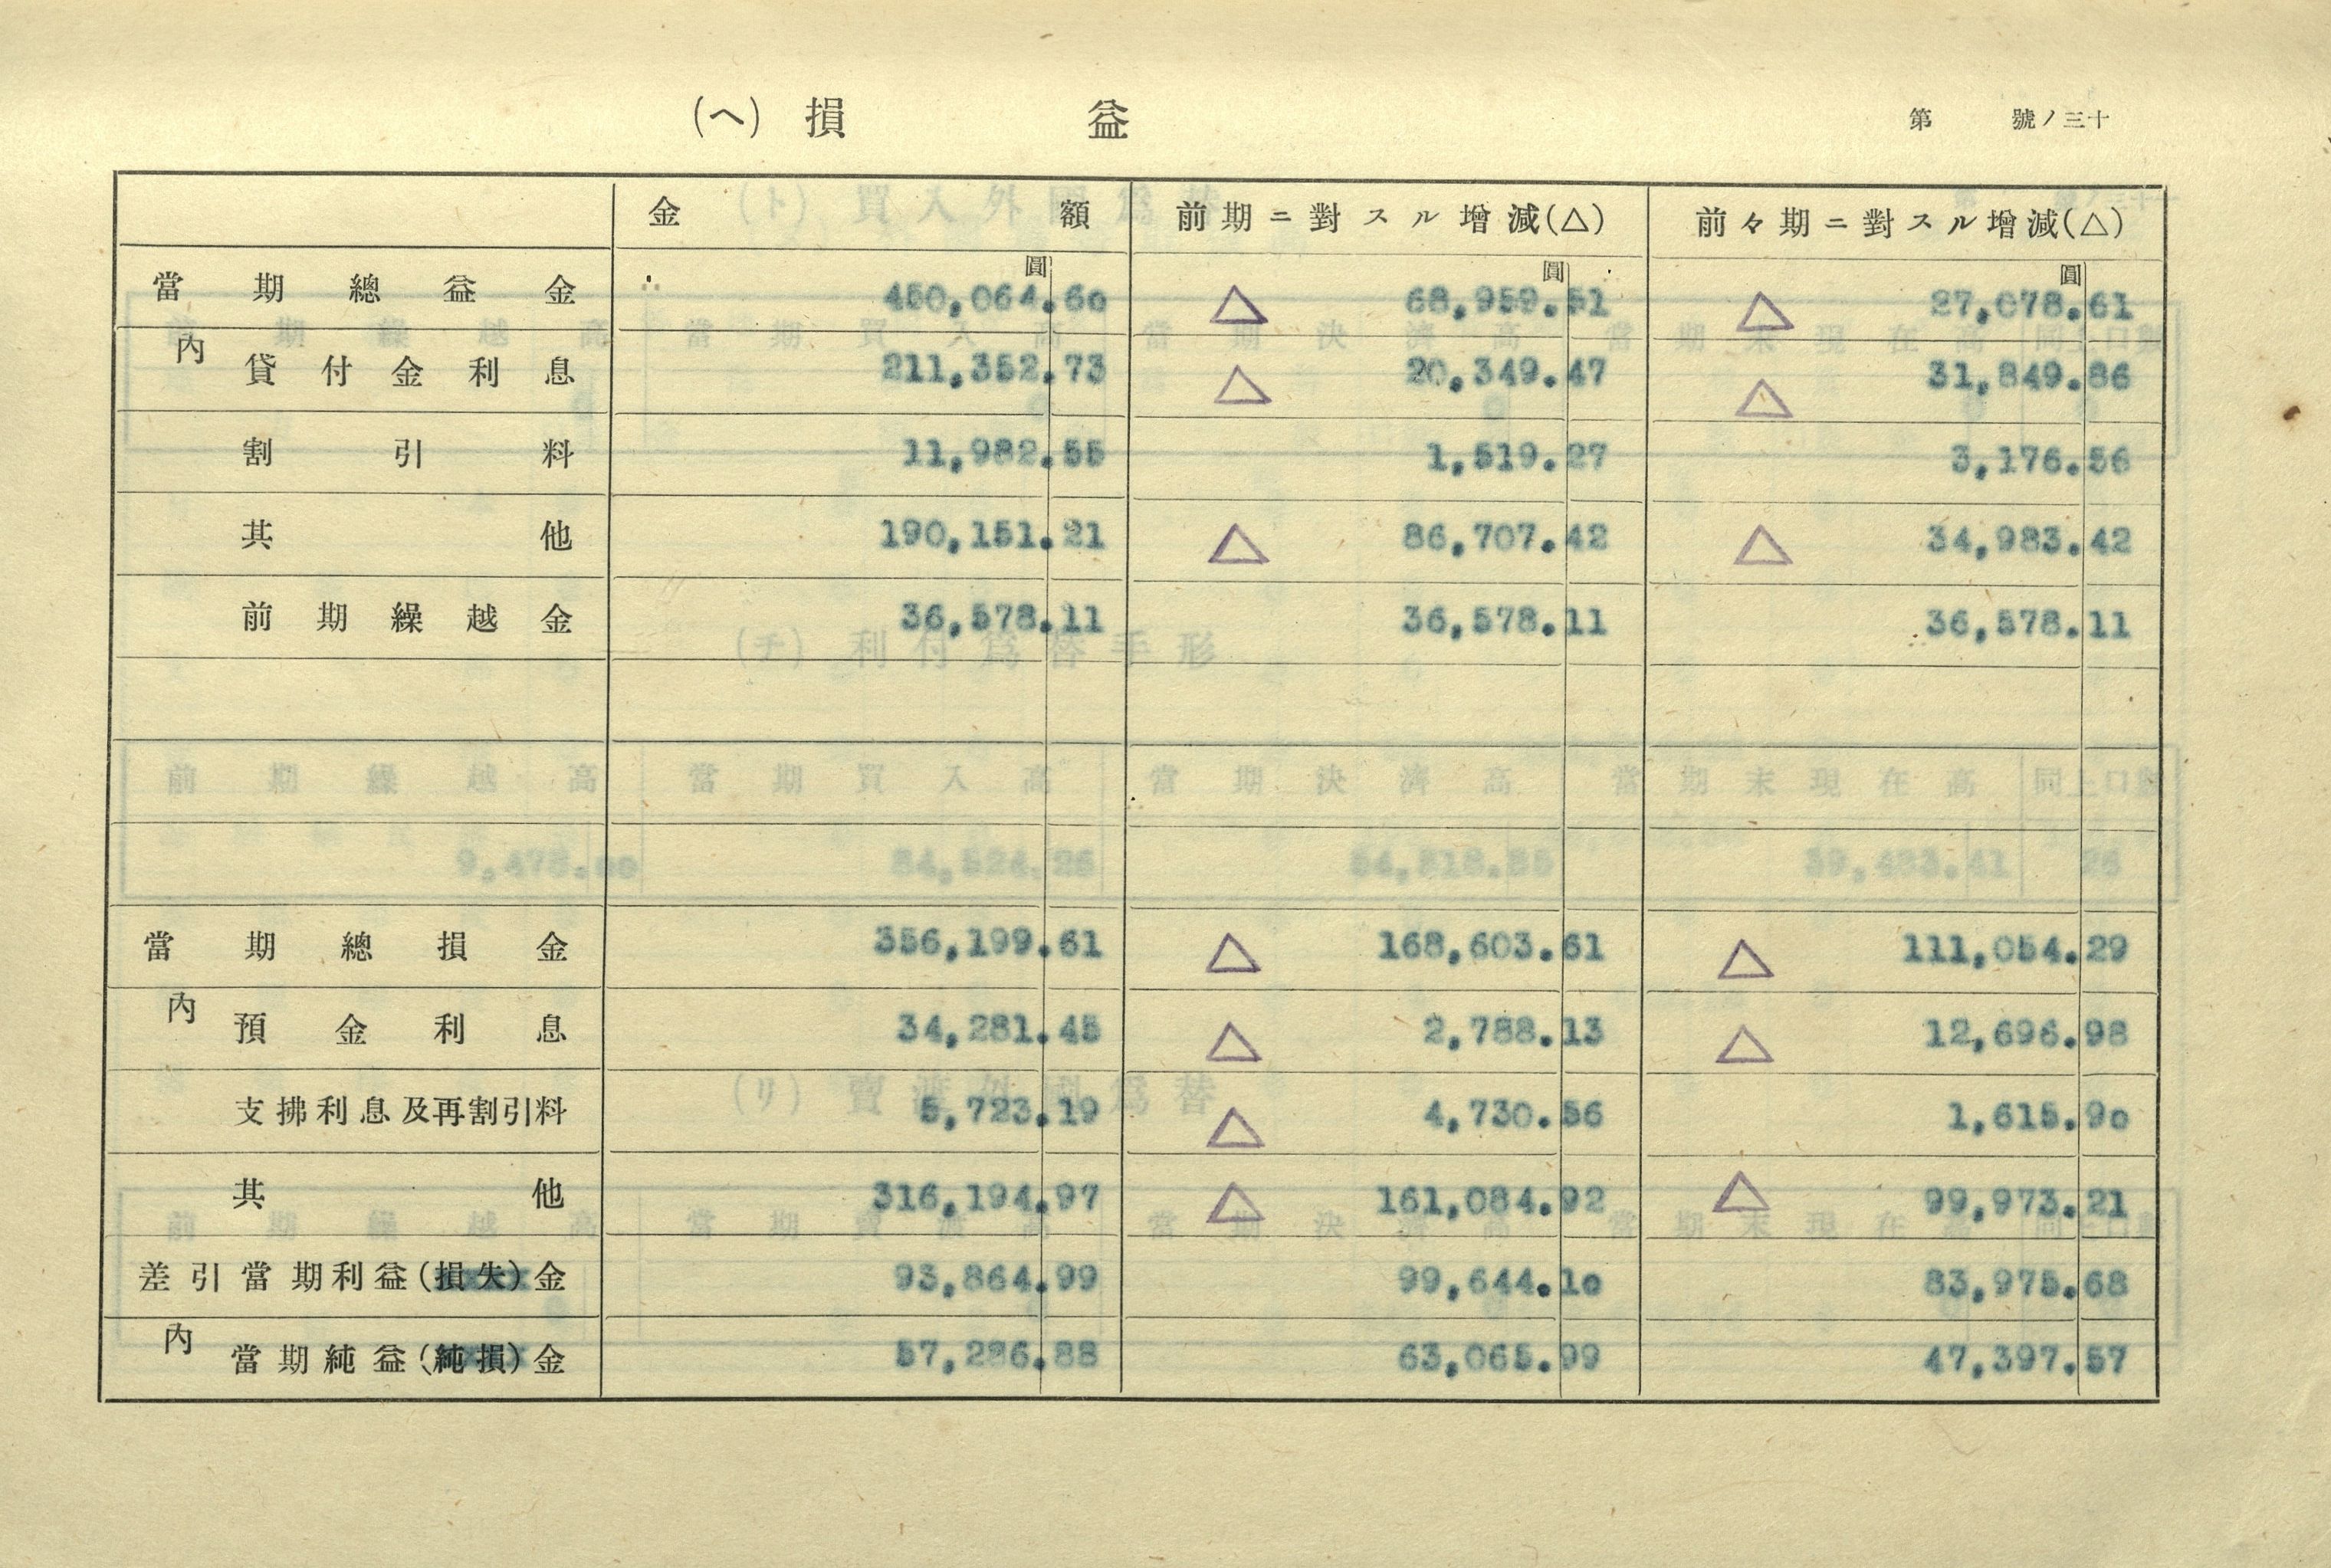 (ヘ) 損 益
第 號ノ三十
金 額 前期ニ對スル增減(△) 前々期ニ對スル增減(△)
圓 圓 圓
當期總益金 450,064.60 △ 68,959.51 △ 27,078.61
內 貸付金利息 211,352.73 △ 20,349.47 △ 31,849.86
割引料 11,982.55 1,519.27 3,176.56
其他 190,151.21 △ 86,707.42 △ 34,983.42
前期繰越金 36,578.11 36,578.11 36,578.11
當期總損金 356,199.61 △ 168,603.61 △ 111,054.29
內 預金利息 34,281.45 △ 2,788.13 △ 12,696.98
支拂利息及再割引料 5,723.19 △ 4,730.56 1,615.90
其他 316,194.97 △ 161,084.92 △ 99,973.21
差引當期利益(損失)金 93,864.99 99,644.10 83,975.68
內 當期純益(純損)金 57,286.88 63,065.99 47,397.57